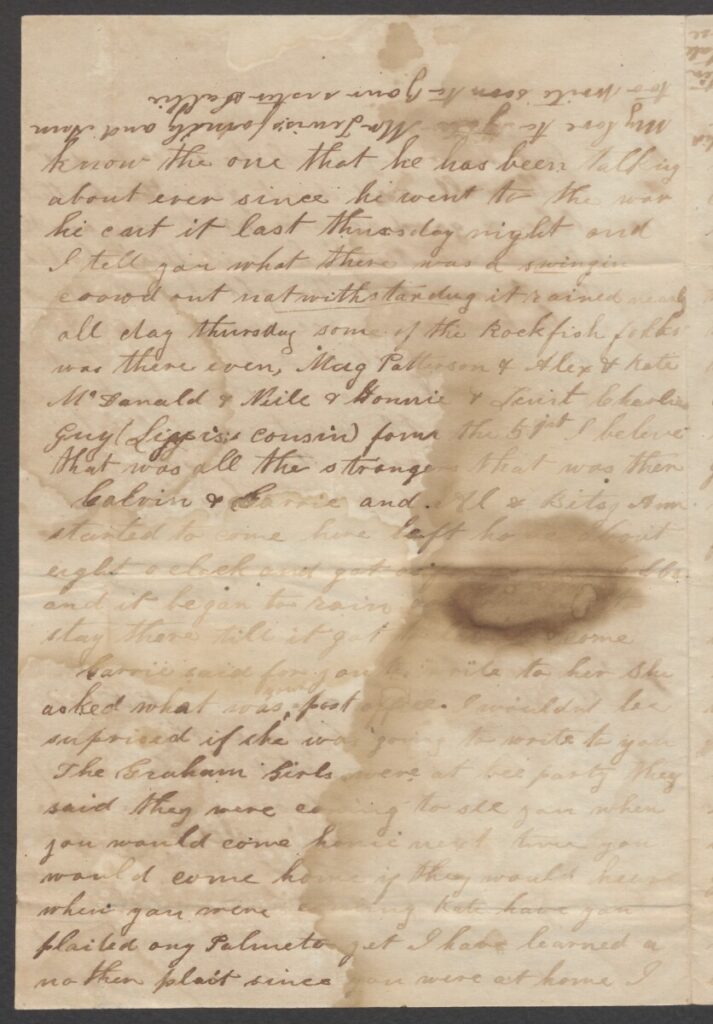 My love to you Mr Lewis family and Ann
too write soon to your sister Sallie
know the one that he has been talking
about ever since he went to the war
he cart it last thursday night and
I tell you what there was a swingin
croowd out notwithstanding it rained nearly
all day thursday some of the Rockfish folks
was there even, Mag Patterson & Alex & Kate
McDanald & Neile & Honnie & Charlie
Guy ( cousin) form the 51st I beleve
that was all the strangers that was ther
Calvin & Carrie and Al & Bitsy Ann
started to come here left home about
eight oclock and got
and it began to rain
stay there till it got to come
Carrie said for you to write to her she
asked what was your post office I wouldnt be
suprised if she was going to write to you
The Graham Girls were at bee party they
said they were coming to see you when
you would come home next time you
would come home if they would hear
when you were coming Kate have you
plaited any Palmeto yet I have learned a
nother plait since you were at home I